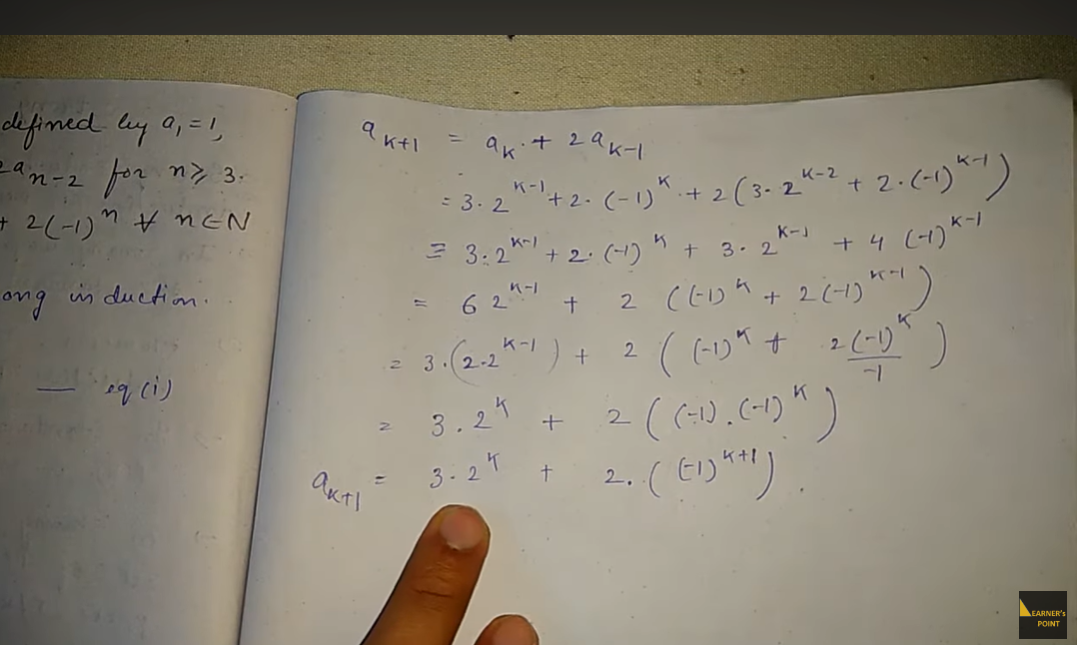 defined by a₁ = 1,
2aₙ₋₂ for n ≥ 3.
+ 2(-1)ⁿ ∀ n ∈ N
ong induction.
— eq (i)
a_{k+1} = a_k + 2a_{k-1}
= 3·2^{k-1} + 2·(-1)^k + 2(3·2^{k-2} + 2·(-1)^{k-1})
= 3·2^{k-1} + 2·(-1)^k + 3·2^{k-1} + 4(-1)^{k-1}
= 6 2^{k-1} + 2((-1)^k + 2(-1)^{k-1})
= 3·(2·2^{k-1}) + 2((-1)^k + 2(-1)^k/-1)
= 3·2^k + 2((-1)·(-1)^k)
a_{k+1} = 3·2^k + 2·((-1)^{k+1}).
LEARNER's
POINT